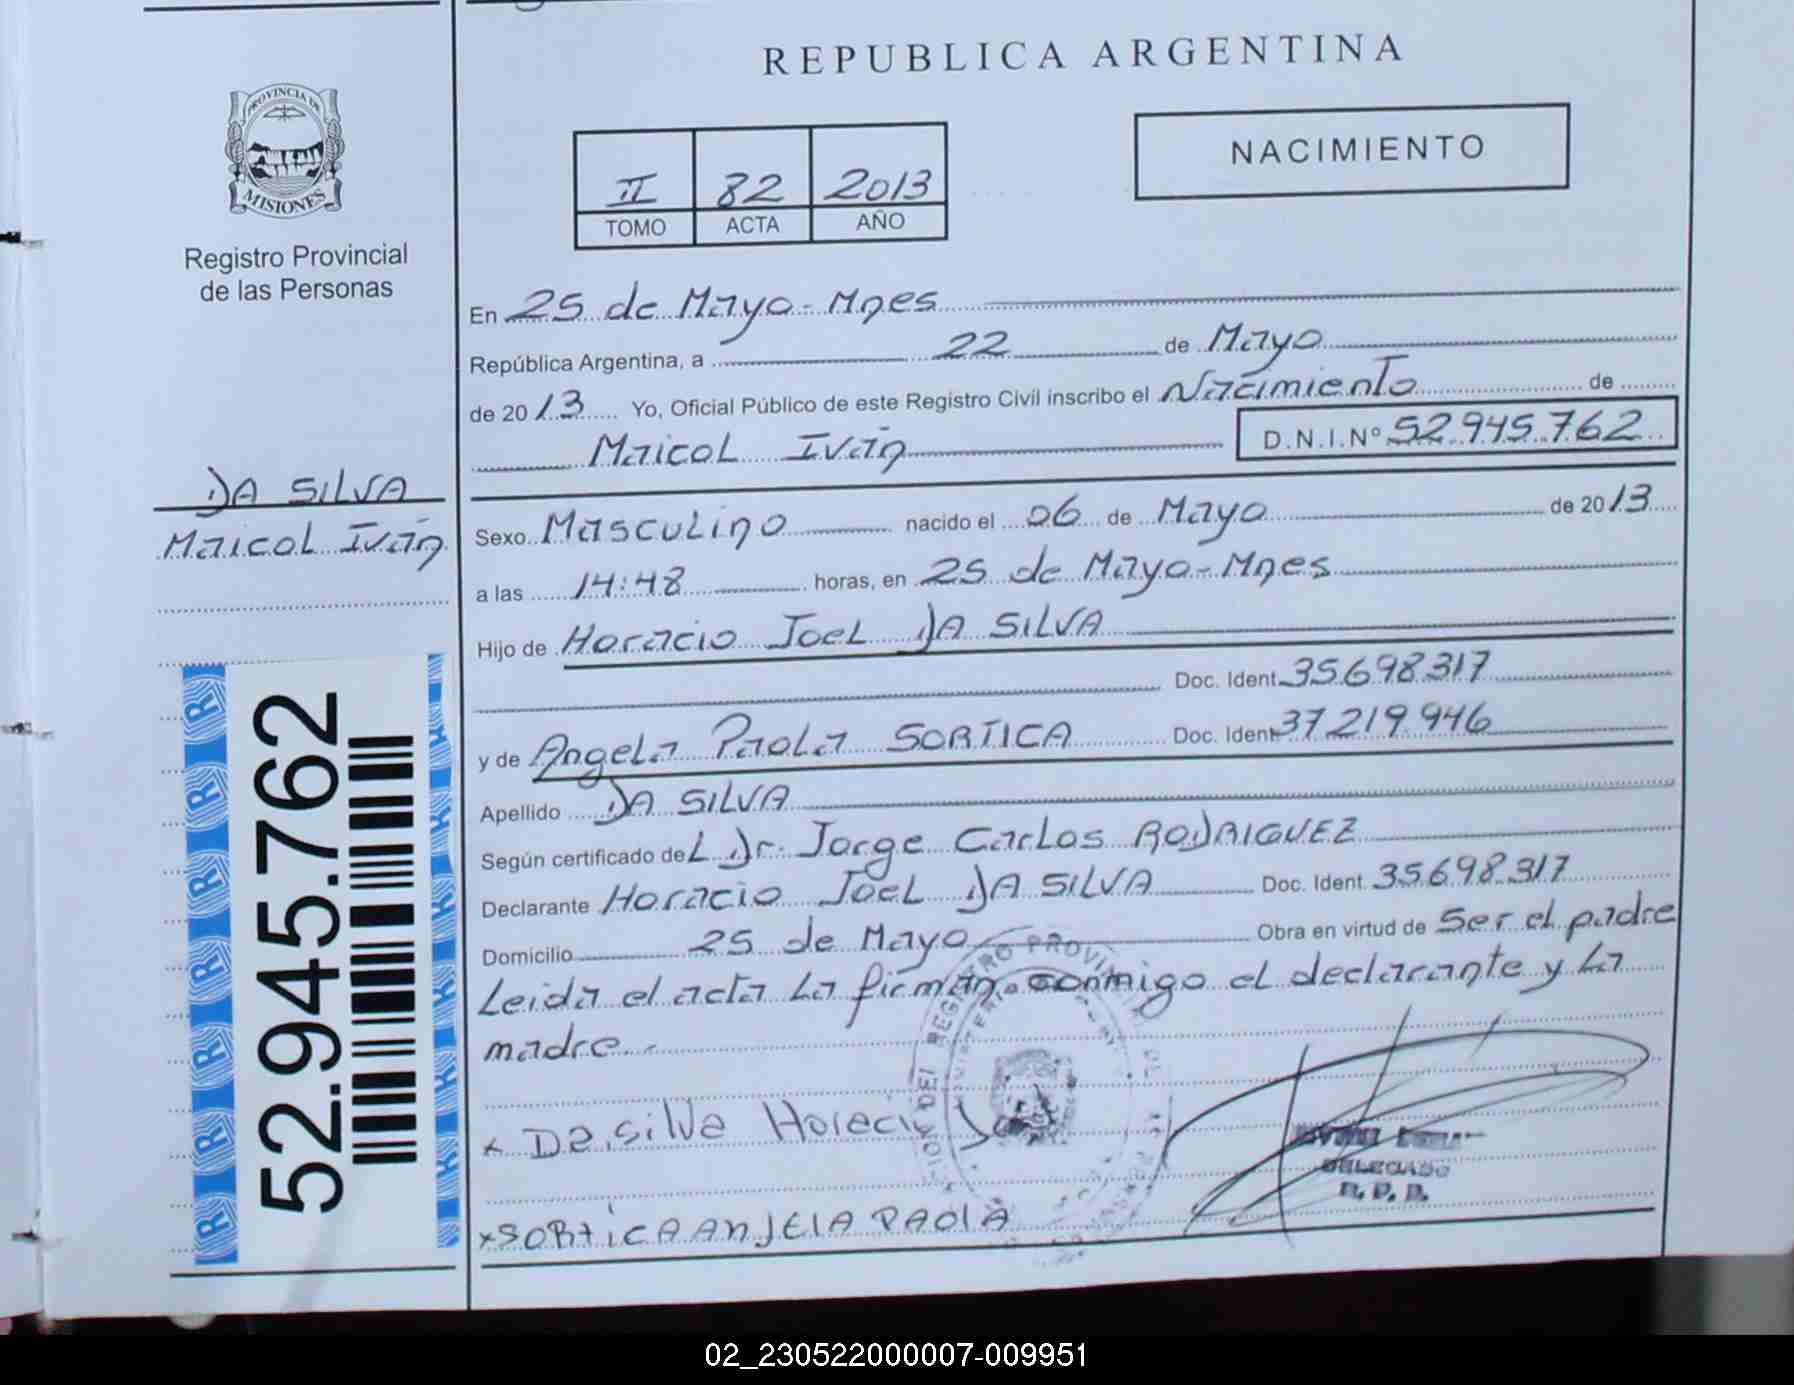 REPUBLICA ARGENTINA
PROVINCIA DE
MISIONES
Registro Provincial
de las Personas
NACIMIENTO
II 82 2013
TOMO ACTA AÑO
En 25 de Mayo - Mnes
República Argentina, a 22 de Mayo
de 2013 Yo, Oficial Público de este Registro Civil inscribo el Nacimiento de
Maicol Iván D.N.I.Nº 52.945.762
DA SILVA
Maicol Iván
Sexo Masculino nacido el 06 de Mayo de 2013
a las 14:48 horas, en 25 de Mayo - Mnes
Hijo de Horacio Joel DA SILVA
Doc. Ident. 35698317
y de Angela Paola SORTICA Doc. Ident. 37219946
Apellido DA SILVA
Según certificado del Dr. Jorge Carlos RODRIGUEZ
Declarante Horacio Joel DA SILVA Doc. Ident. 35698317
Domicilio 25 de Mayo Obra en virtud de Ser el padre
Leida el acta la firman conmigo el declarante y la
madre.-
x Da silva Horaci
x SORtiCA ANJElA PAOlA
DELEGADO
52.945.762
02_230522000007-009951